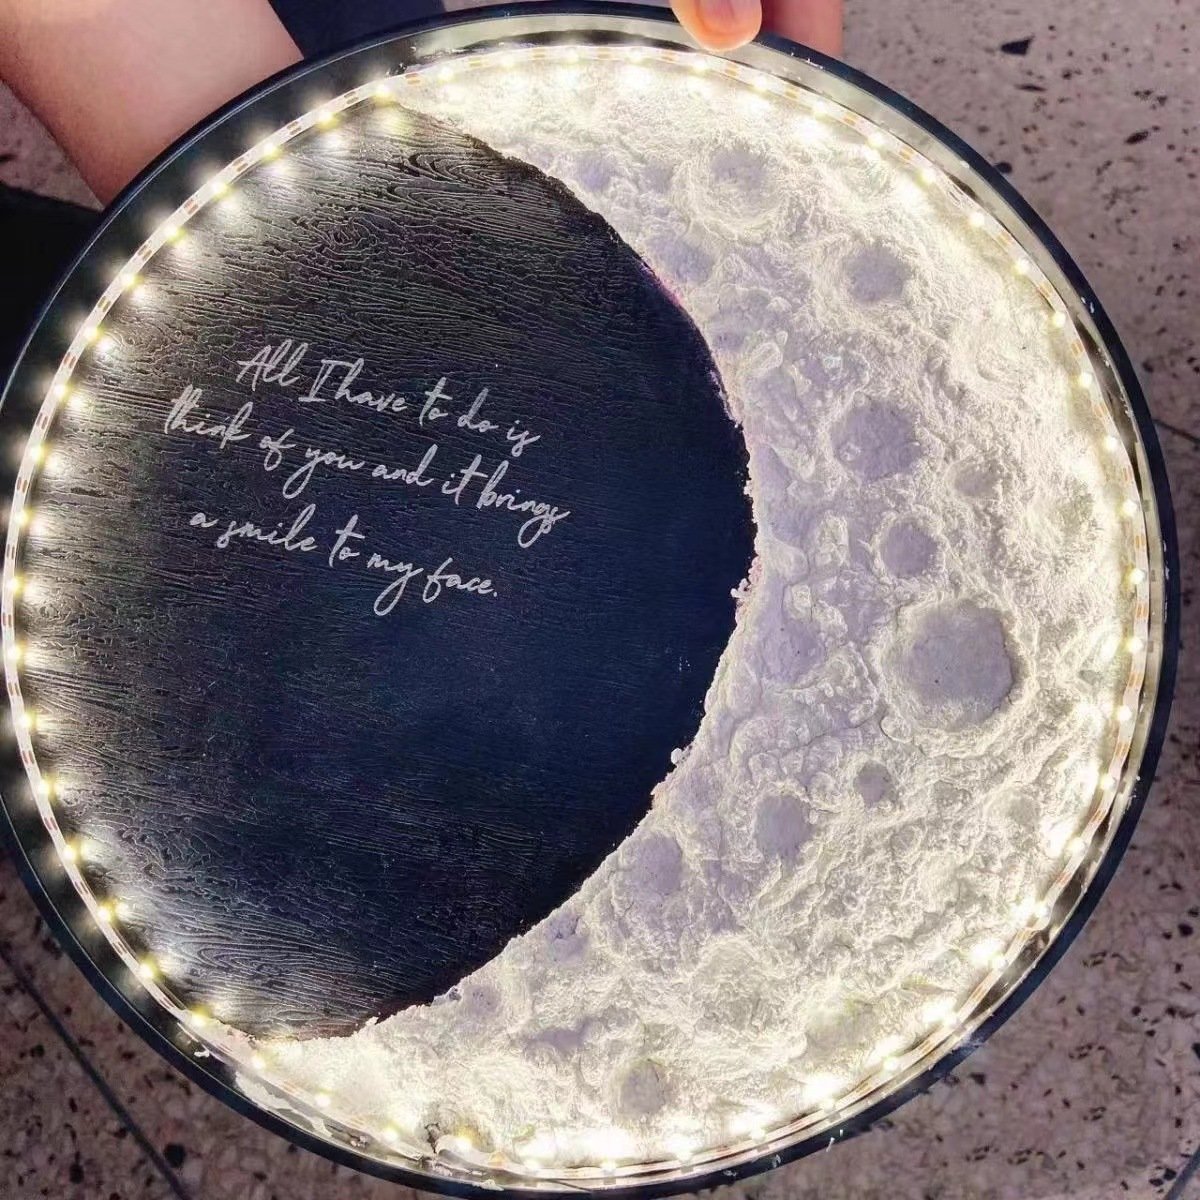 All I have to do is
think of you and it brings
a smile to my face.